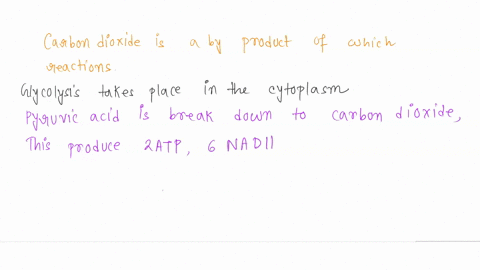 Carbon dioxide is a by product of which
reactions.
Glycolysis takes place in the cytoplasm
Pyruvic acid is break down to carbon dioxide,
This produce 2ATP, 6 NADH